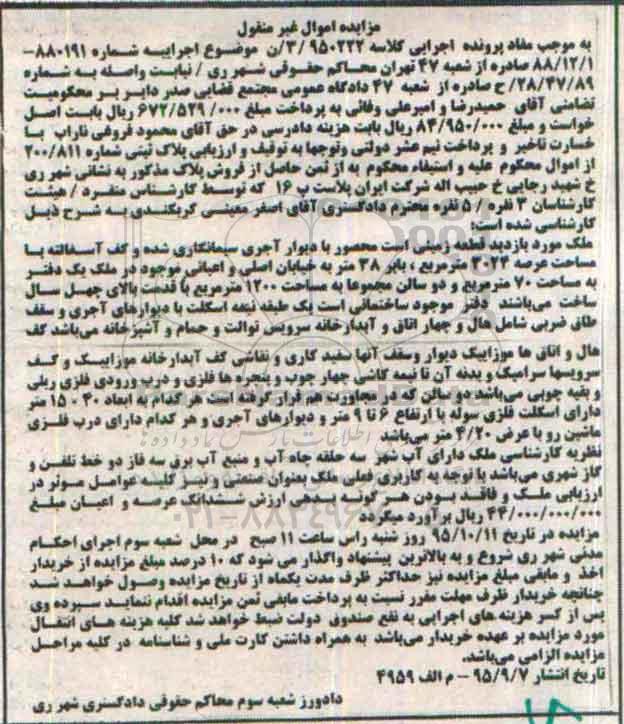 مزایده اموال غیر منقول
به موجب مفاد پرونده اجرایی کلاسه ۹۵۰۲۲۲/۳/ن موضوع اجراییه شماره ۸۸۰۱۹۱-
۸۸/۱۲/۱ صادره از شعبه ۴۷ تهران محاکم حقوقی شهر ری / نیابت واصله به شماره
۲۸/۴۷/۸۹/ح صادره از شعبه ۴۷ دادگاه عمومی مجتمع قضایی صدر دایر بر محکومیت
تضامنی آقای حمیدرضا و امیرعلی وفائی به پرداخت مبلغ ۶۷۲/۵۲۹/۰۰۰ ریال بابت اصل
خواست و مبلغ ۸۴/۹۵۰/۰۰۰ ریال بابت هزینه دادرسی در حق آقای محمود فروغی ناراب با
خسارت تاخیر و پرداخت نیم عشر دولتی وتوجها به توقیف و ارزیابی پلاک ثبتی شماره ۲۰۰/۸۱۱
از اموال محکوم علیه و استیفاء محکوم به از ثمن حاصل از فروش پلاک مذکور به نشانی شهر ری
خ شهید رجایی خ حبیب اله شرکت ایران پلاست پ ۱۶ که توسط کارشناس منفرد / هیئت
کارشناسان ۳ نفره / ۵ نفره محترم دادگستری آقای اصغر معینی کربکندی به شرح ذیل
کارشناسی شده است:
ملک مورد بازدید قطعه زمینی است محصور با دیوار آجری سیمانکاری شده و کف آسفالته با
مساحت عرصه ۳۰۲۴ مترمربع ، بابر ۳۸ متر به خیابان اصلی و اعیانی موجود در ملک یک دفتر
به مساحت ۷۰ مترمربع و دو سالن مجموعا به مساحت ۱۲۰۰ مترمربع با قدمت بالای چهل سال
ساخت میباشند دفتر موجود ساختمانی است یک طبقه نیمه اسکلت با دیوارهای آجری و سقف
طاق ضربی شامل هال و چهار اتاق و آبدارخانه سرویس توالت و حمام و آشپزخانه می‌باشد کف
هال و اتاق ها موزاییک دیوار وسقف آنها سفید کاری و نقاشی کف آبدارخانه موزاییک و کف
سرویسها سرامیک و بدنه آن تا نیمه کاشی چهار چوب و پنجره ها فلزی و درب ورودی فلزی ریلی
و بقیه چوبی می‌باشد دو سالن که در مجاورت هم قرار گرفته است هر کدام به ابعاد ۴۰ - ۱۵ متر
دارای اسکلت فلزی سوله با ارتفاع ۶ تا ۹ متر و دیوارهای آجری و هر کدام دارای درب فلزی
ماشین رو با عرض ۴/۲۰ متر می‌باشد
نظریه کارشناسی ملک دارای آب شهر سه حلقه چاه آب و منبع آب برق سه فاز دو خط تلفن و
گاز شهری می‌باشد با توجه به کاربری فعلی ملک بعنوان صنعتی و نیز کلیه عوامل موثر در
ارزیابی ملک و فاقد بودن هر گونه بدهی ارزش ششدانگ عرصه و اعیان مبلغ
۴۴/۰۰۰/۰۰۰/۰۰۰ ریال برآورد میگردد
مزایده در تاریخ ۹۵/۱۰/۱۱ روز شنبه راس ساعت ۱۱ صبح در محل شعبه سوم اجرای احکام
مدنی شهر ری شروع و به بالاترین پیشنهاد واگذار می شود که ۱۰ درصد مبلغ مزایده از خریدار
اخذ و مابقی مبلغ مزایده نیز حداکثر ظرف مدت یکماه از تاریخ مزایده وصول خواهد شد
چنانچه خریدار ظرف مهلت مقرر نسبت به پرداخت مابقی ثمن مزایده اقدام ننماید سپرده وی
پس از کسر هزینه های اجرایی به نفع صندوق دولت ضبط خواهد شد کلیه هزینه های انتقال
مورد مزایده بر عهده خریدار می‌باشد به همراه داشتن کارت ملی و شناسنامه در کلیه مراحل
مزایده الزامی می‌باشد.
تاریخ انتشار ۹۵/۹/۷ - م الف ۴۹۵۹
دادورز شعبه سوم محاکم حقوقی دادگستری شهر ری
۰۲۱-۸۸۳۴۹۶۷۰